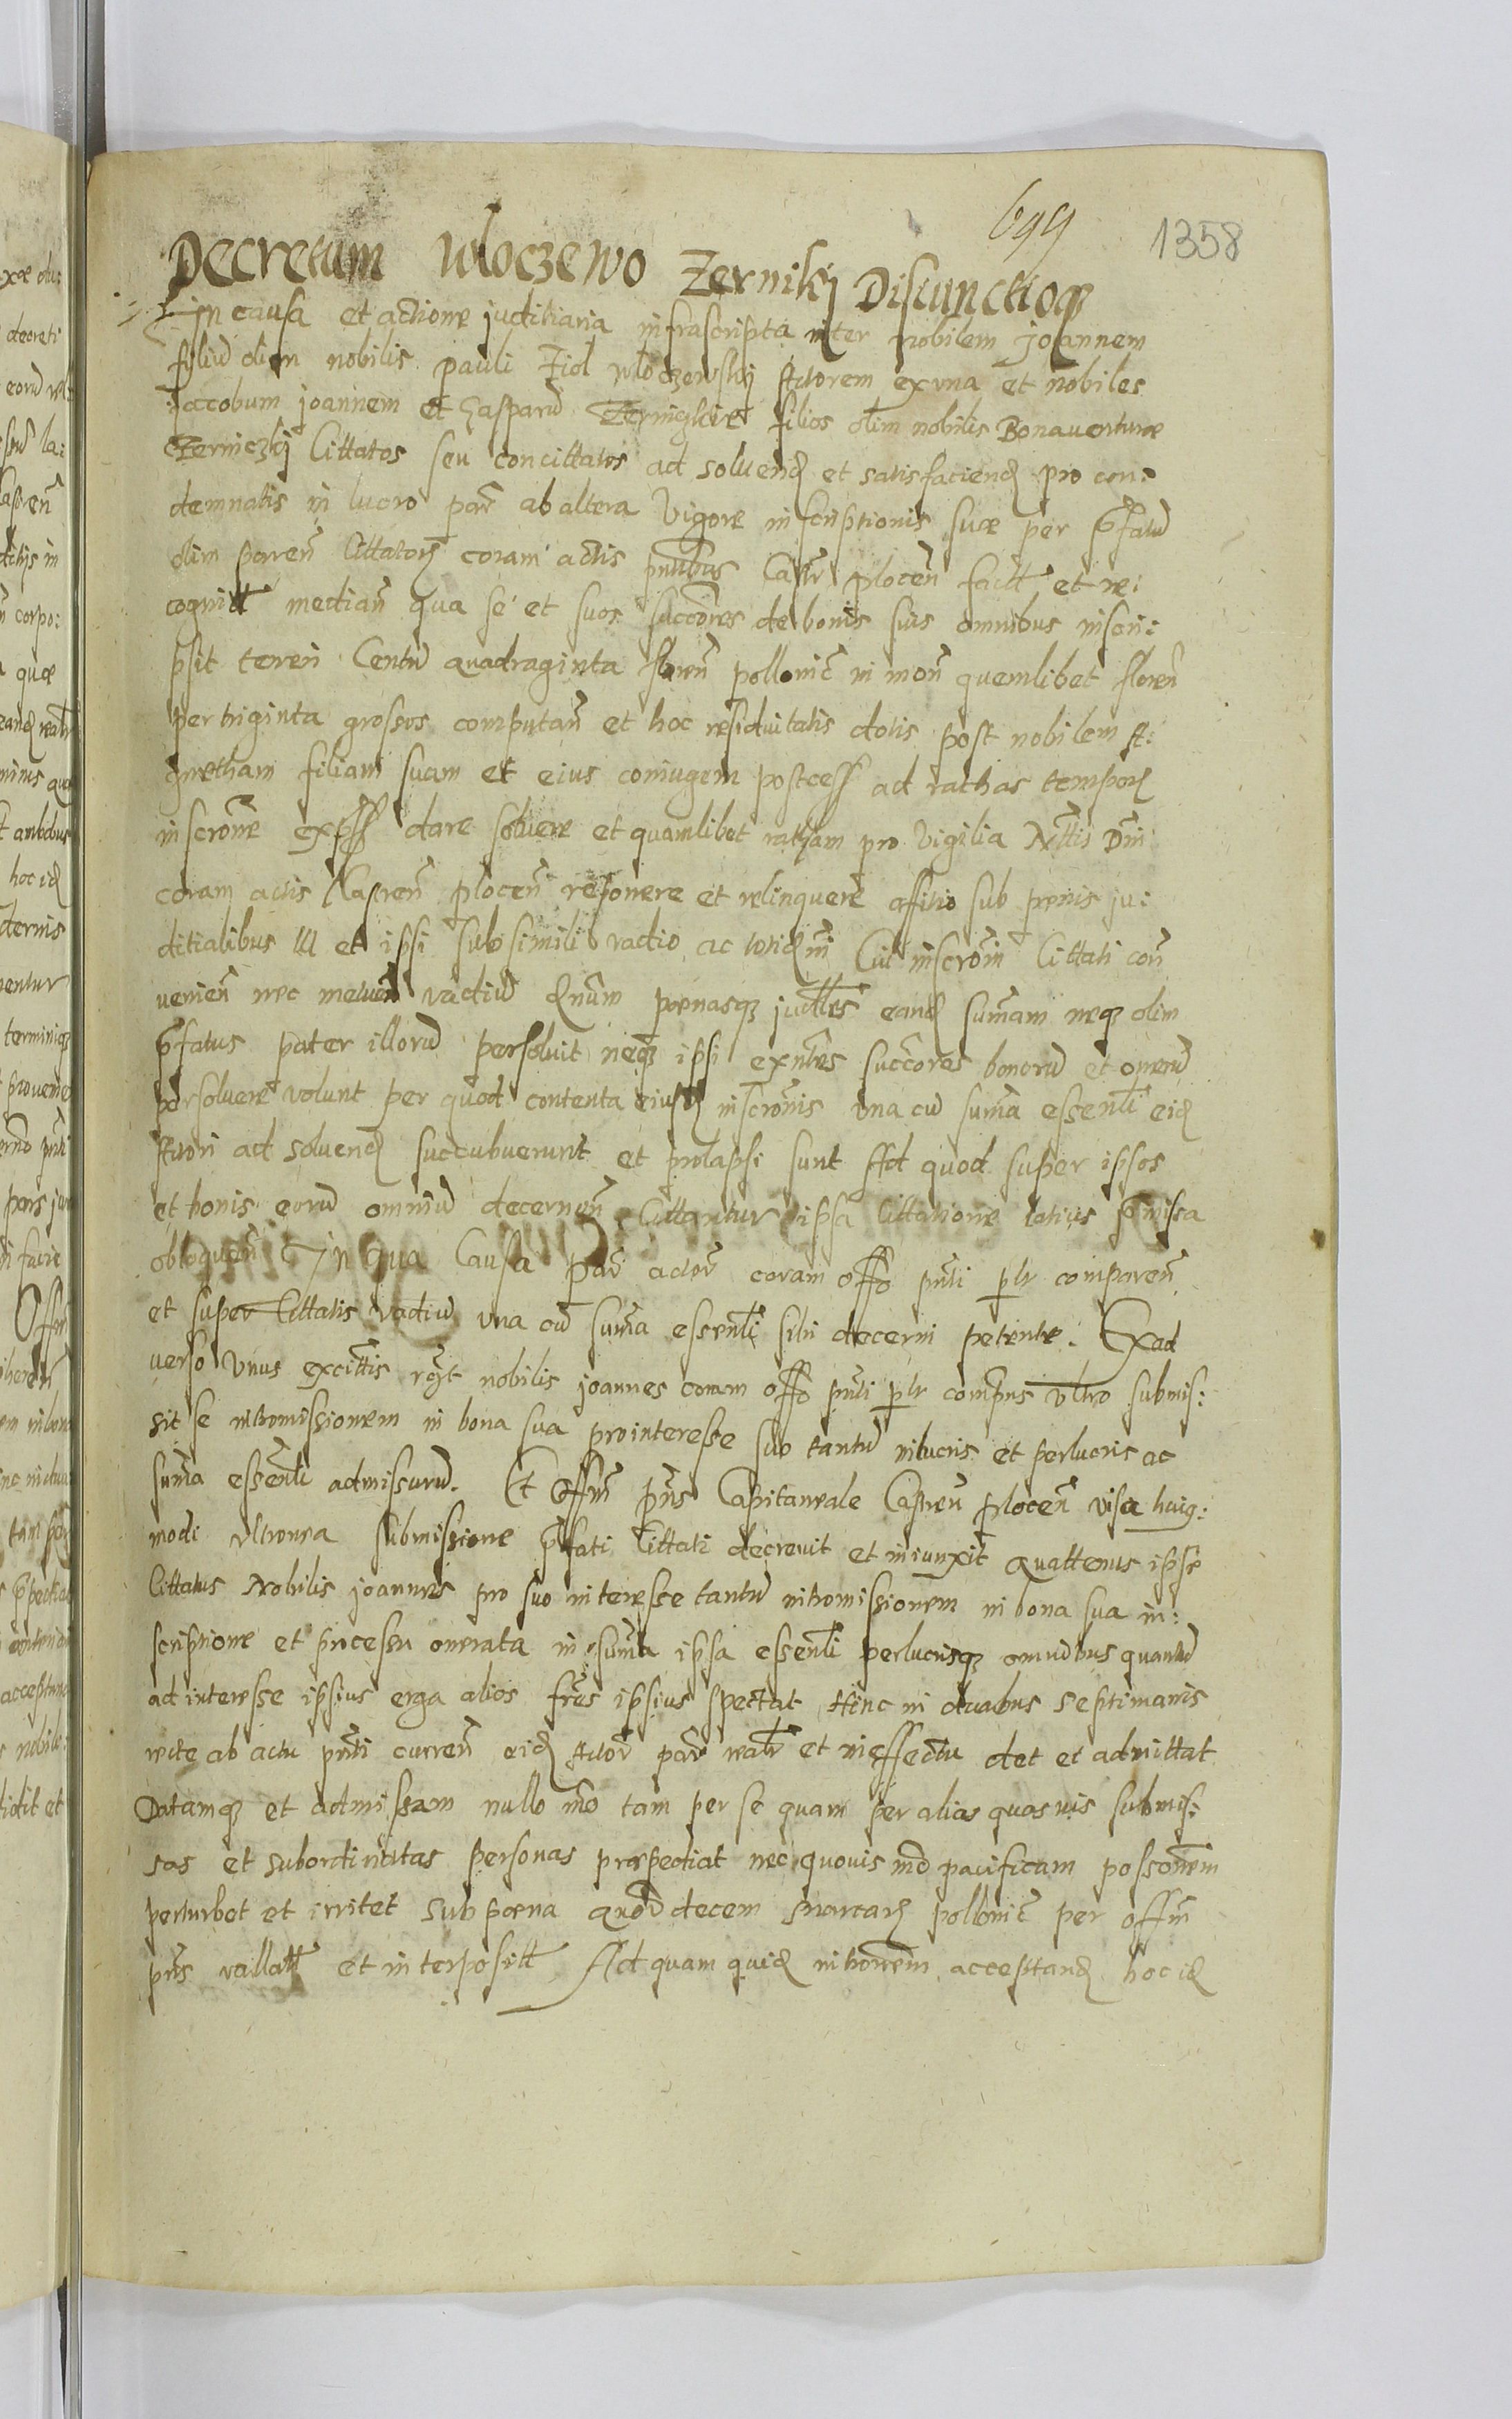 699 1358
Decretum Wloczewo Zerniki Disiunctioq
In causa et actione juditiaria infrascripta inter nobilem joannem
filiu olim nobilis pauli Ziol wloczewskj Actorem ex una et nobiles
Jaccobum joannem et Gasparu Zerniczkie filios olim nobilis Bonaventuræ
Zerniczkj Cittatos seu concittatos ad soluend et satisfaciend pro con:
demnatis in lucro par ab altera Vigore inscriptionis suæ per pfatu
olim paren Cittator coram actis pntibus Castr plocen factt et re:
cognitt median qua se et suos succores de bonis suis omnibus inscri:
psit teneri Centu quadraginta floren pollonic in mon quemlibet floren
per triginta grossos computan et hoc residuitatis dotis post nobilem A:
gnetham filiam suam et eius coniugem postcess ad rathas tempor
in scrone expss dare solvere et quamlibet ratham pro Vigilia Nttis Dni
coram actis Castren plocen reponere et relinquere affitio sub pœnis ju:
ditialibus lll et ipsi sub simili vadio ac totidm Cui inscroni Cittati con
venien nec metuen vadiu Qnum pœnasq judttes eand summam neq olim
pfatus pater illoru persoluit neq ipsi exntes succores bonoru et oneru
persoluere volunt per quod contenta eiusd inscronis una cu suma essenli eid
Actori ad soluend succubuerunt et prolapsi sunt Ad quod super ipsos
et bonis eoru omniu decernen Cittantur ipsa Cittatione latius pmissa
obloquen In qua Causa par actor coram offo pnti plr comparen
et super Cittatis vadiu una cu suma essenli sibi decerni petente. Exad
verso Vnus excittis nobilis joannes coram offo pnti plr compns vltro submis:
sit se intromissionem in bona sua prointeresse suo tantu in lucris et perlucris ac
suma essenli admissuru. Et offm pns Capitaneale Castren plocen visa huig:
modi vltronea submissione pfati Cittati decrevit et iniunxit quattenus ipse
Cittatus Nobilis joannes pro suo interesse tantu intromissionem in bona sua in:
scriptione et processu onerata in suma ipsa essenli perlucrisq omnibus quantu
ad interesse ipsius erga alios fres ipsius spectat Hinc in duabus septimanis
recte ab actu pnti curren eid Actor par realr et in effectu det et admittat
Datamq et admissam nullo mo tam per se quam per alias quasuis submis:
sas et subordinatas personas præpediat nec quouis mo pacificam possonem
perturbet et irritet sub pœna decem marcar pollonic per offm
pns vallatt et interpositt Ad quam quid intronem acceptand hoc id